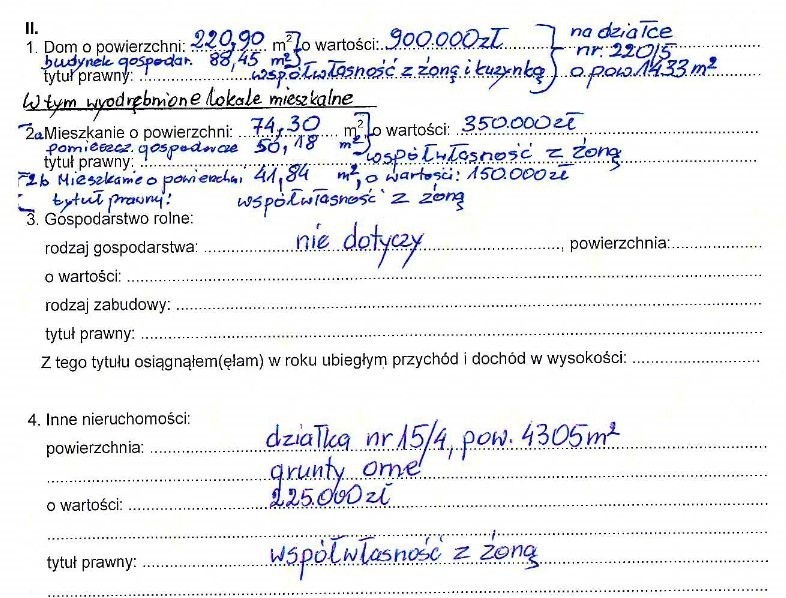 II.
1. Dom o powierzchni: 220,90 m² o wartości: 900.000zł na działce
budynek gospodar. 88,45 m² nr. 220/5
tytuł prawny: współwłasność z żoną i kuzynką o pow. 1433 m²
W tym wyodrębnione lokale mieszkalne
2a Mieszkanie o powierzchni: 74,30 m², o wartości: 350.000zł
pomieszcz. gospodarcze 50,18 m²
tytuł prawny: współwłasność z żoną
2b Mieszkanie o powierzchni 41,84 m², o wartości: 150.000zł
tytuł prawny: współwłasność z żoną
3. Gospodarstwo rolne:
rodzaj gospodarstwa: nie dotyczy, powierzchnia:
o wartości:
rodzaj zabudowy:
tytuł prawny:
Z tego tytułu osiągnąłem(ęłam) w roku ubiegłym przychód i dochód w wysokości:
4. Inne nieruchomości:
powierzchnia: działka nr 15/4, pow. 4305m²
grunty orne
o wartości: 225.000zł
tytuł prawny: współwłasność z żoną